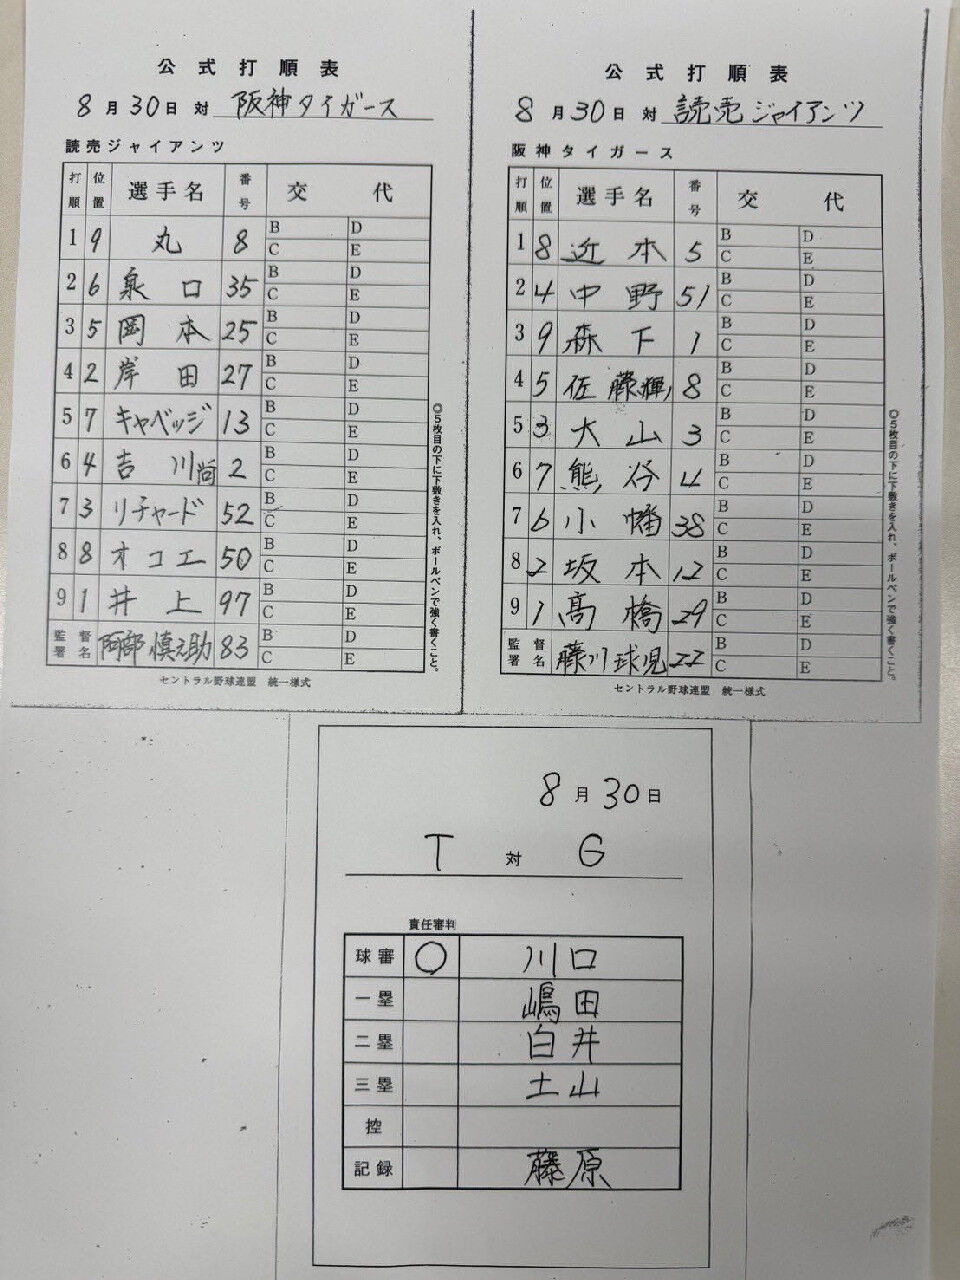 公式打順表
8月30日 対 阪神タイガース
読売ジャイアンツ
打順 位置 選手名 番号 交代
1 9 丸 8 B D C E
2 6 泉口 35 B D C E
3 5 岡本 25 B D C E
4 2 岸田 27 B D C E
5 7 キャベッジ 13 B D C E
6 4 吉川尚 2 B D C E
7 3 リチャード 52 B D C E
8 8 オコエ 50 B D C E
9 1 井上 97 B D C E
監督署名 阿部慎之助 83 B D C E
セントラル野球連盟 統一様式
◎5枚目の下に下敷きを入れ、ボールペンで強く書くこと。
公式打順表
8月30日 対 読売ジャイアンツ
阪神タイガース
打順 位置 選手名 番号 交代
1 8 近本 5 B D C E
2 4 中野 51 B D C E
3 9 森下 1 B D C E
4 5 佐藤輝 8 B D C E
5 3 大山 3 B D C E
6 7 熊谷 4 B D C E
7 6 小幡 38 B D C E
8 2 坂本 12 B D C E
9 1 髙橋 29 B D C E
監督署名 藤川球児 22 B D C E
セントラル野球連盟 統一様式
◎5枚目の下に下敷きを入れ、ボールペンで強く書くこと。
8月30日
T 対 G
責任審判
球審 ○ 川口
一塁 嶋田
二塁 白井
三塁 土山
控
記録 藤原